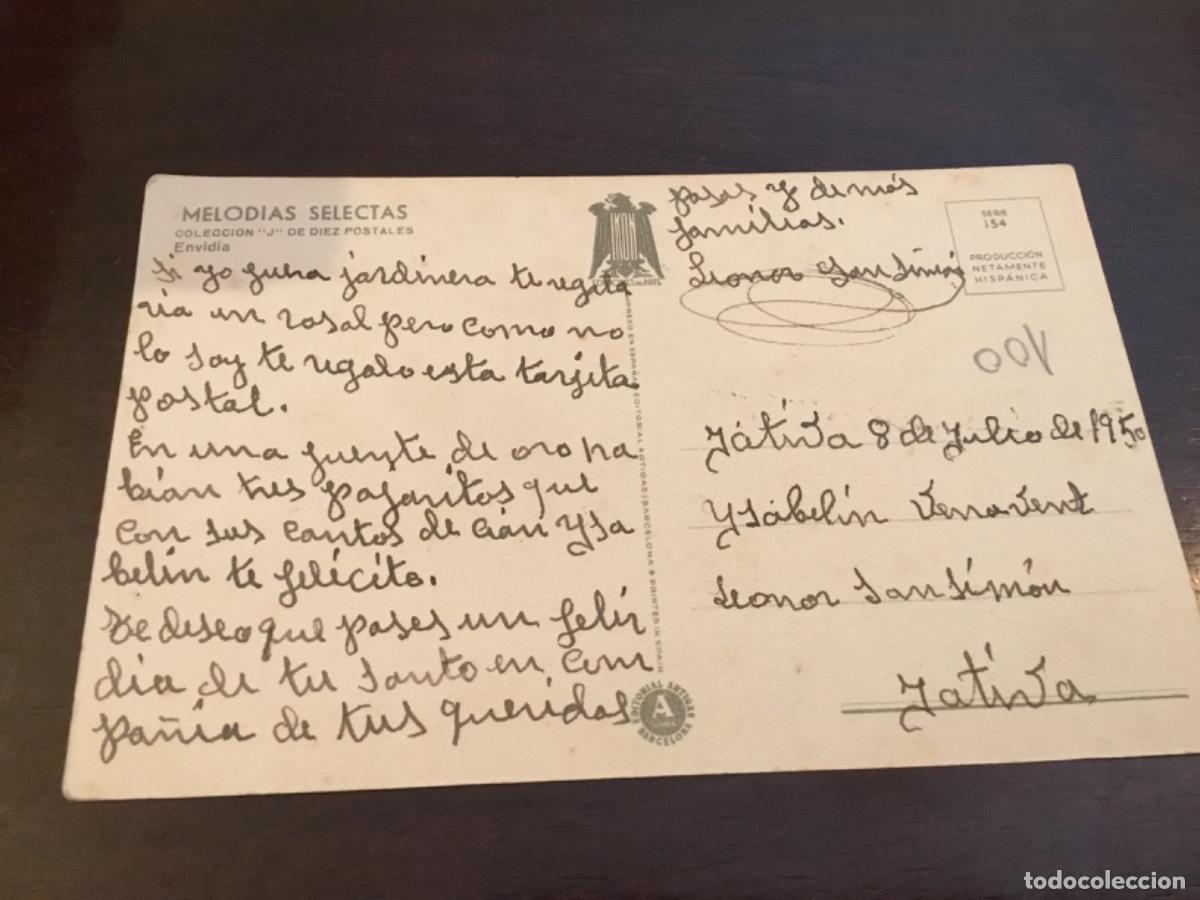 MELODIAS SELECTAS
COLECCION "J" DE DIEZ POSTALES
Envidia
Si yo guera jardinera te rgala
ria un rosal pero como no
lo soy te regalo esta tarjita
postal.
En una guente de oro ha
bian tres pajaritos que
con sus cantos de cian Ysa
belin te felicito.
Te deseo que pases un felir
dia de tu santo en com
pañia de tus queridas
IKON
IMPRESO EN ESPAÑA EDITORIAL ARTIGAS (BARCELONA) PRINTED IN SPAIN
EDITORIAL ARTIGAS
A
BARCELONA
pasas y de más
familias.
Leonor San Simón
SERIE
154
PRODUCCIÓN
NETAMENTE
HISPÁNICA
001
Játiva 8 de Julio de 1950
Ysabelín Venavent
Leonor San Simón
Játiva
todocoleccion